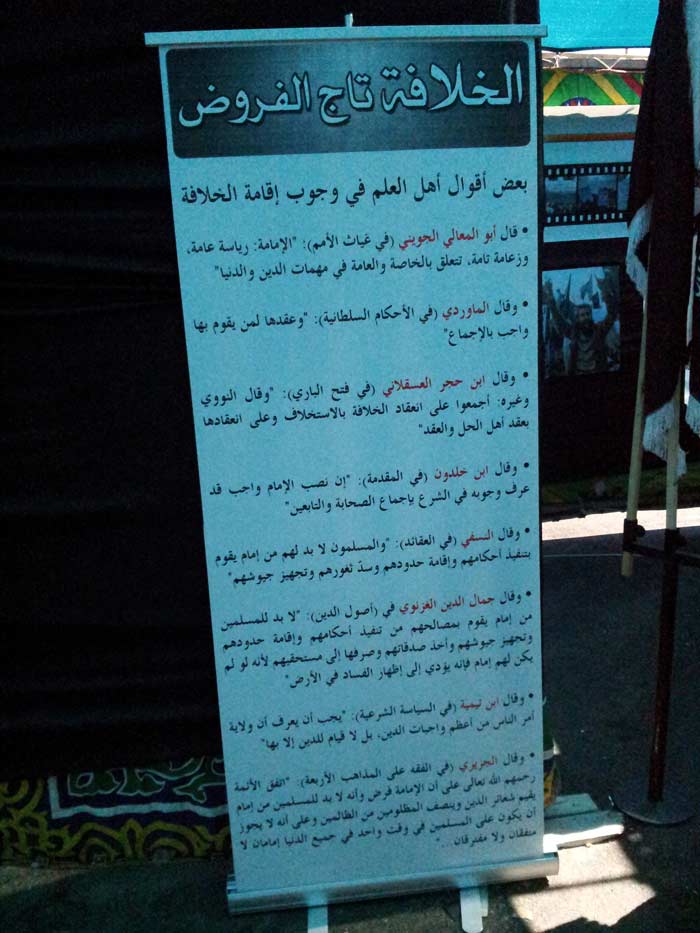 الخلافة تاج الفروض
بعض أقوال أهل العلم في وجوب إقامة الخلافة
• قال أبو المعالي الجويني (في غياث الأمم): "الإمامة: رياسة عامة،
وزعامة تامة، تتعلق بالخاصة والعامة في مهمات الدين والدنيا"
• وقال الماوردي (في الأحكام السلطانية): "وعقدها لمن يقوم بها
واجب بالإجماع"
• وقال ابن حجر العسقلاني (في فتح الباري): "وقال النووي
وغيره: أجمعوا على انعقاد الخلافة بالاستخلاف وعلى انعقادها
بعقد أهل الحل والعقد"
• وقال ابن خلدون (في المقدمة): "إن نصب الإمام واجب قد
عرف وجوبه في الشرع بإجماع الصحابة والتابعين"
• وقال النسفي (في العقائد): "والمسلمون لا بد لهم من إمام يقوم
بتنفيذ أحكامهم وإقامة حدودهم وسدّ ثغورهم وتجهيز جيوشهم"
• وقال جمال الدين الغزنوي في (أصول الدين): "لا بد للمسلمين
من إمام يقوم بمصالحهم من تنفيذ أحكامهم وإقامة حدودهم
وتجهيز جيوشهم وأخذ صدقاتهم وصرفها إلى مستحقيهم لأنه لو لم
يكن لهم إمام فإنه يؤدي إلى إظهار الفساد في الأرض"
• وقال ابن تيمية (في السياسة الشرعية): "يجب أن يعرف أن ولاية
أمر الناس من أعظم واجبات الدين، بل لا قيام للدين إلا بها"
• وقال الجزيري (في الفقه على المذاهب الأربعة): "اتفق الأئمة
رحمهم الله تعالى على أن الإمامة فرض وأنه لا بد للمسلمين من إمام
يقيم شعائر الدين وينصف المظلومين من الظالمين وعلى أنه لا يجوز
أن يكون على المسلمين في وقت واحد في جميع الدنيا إمامان لا
متفقان ولا مفترقان..."